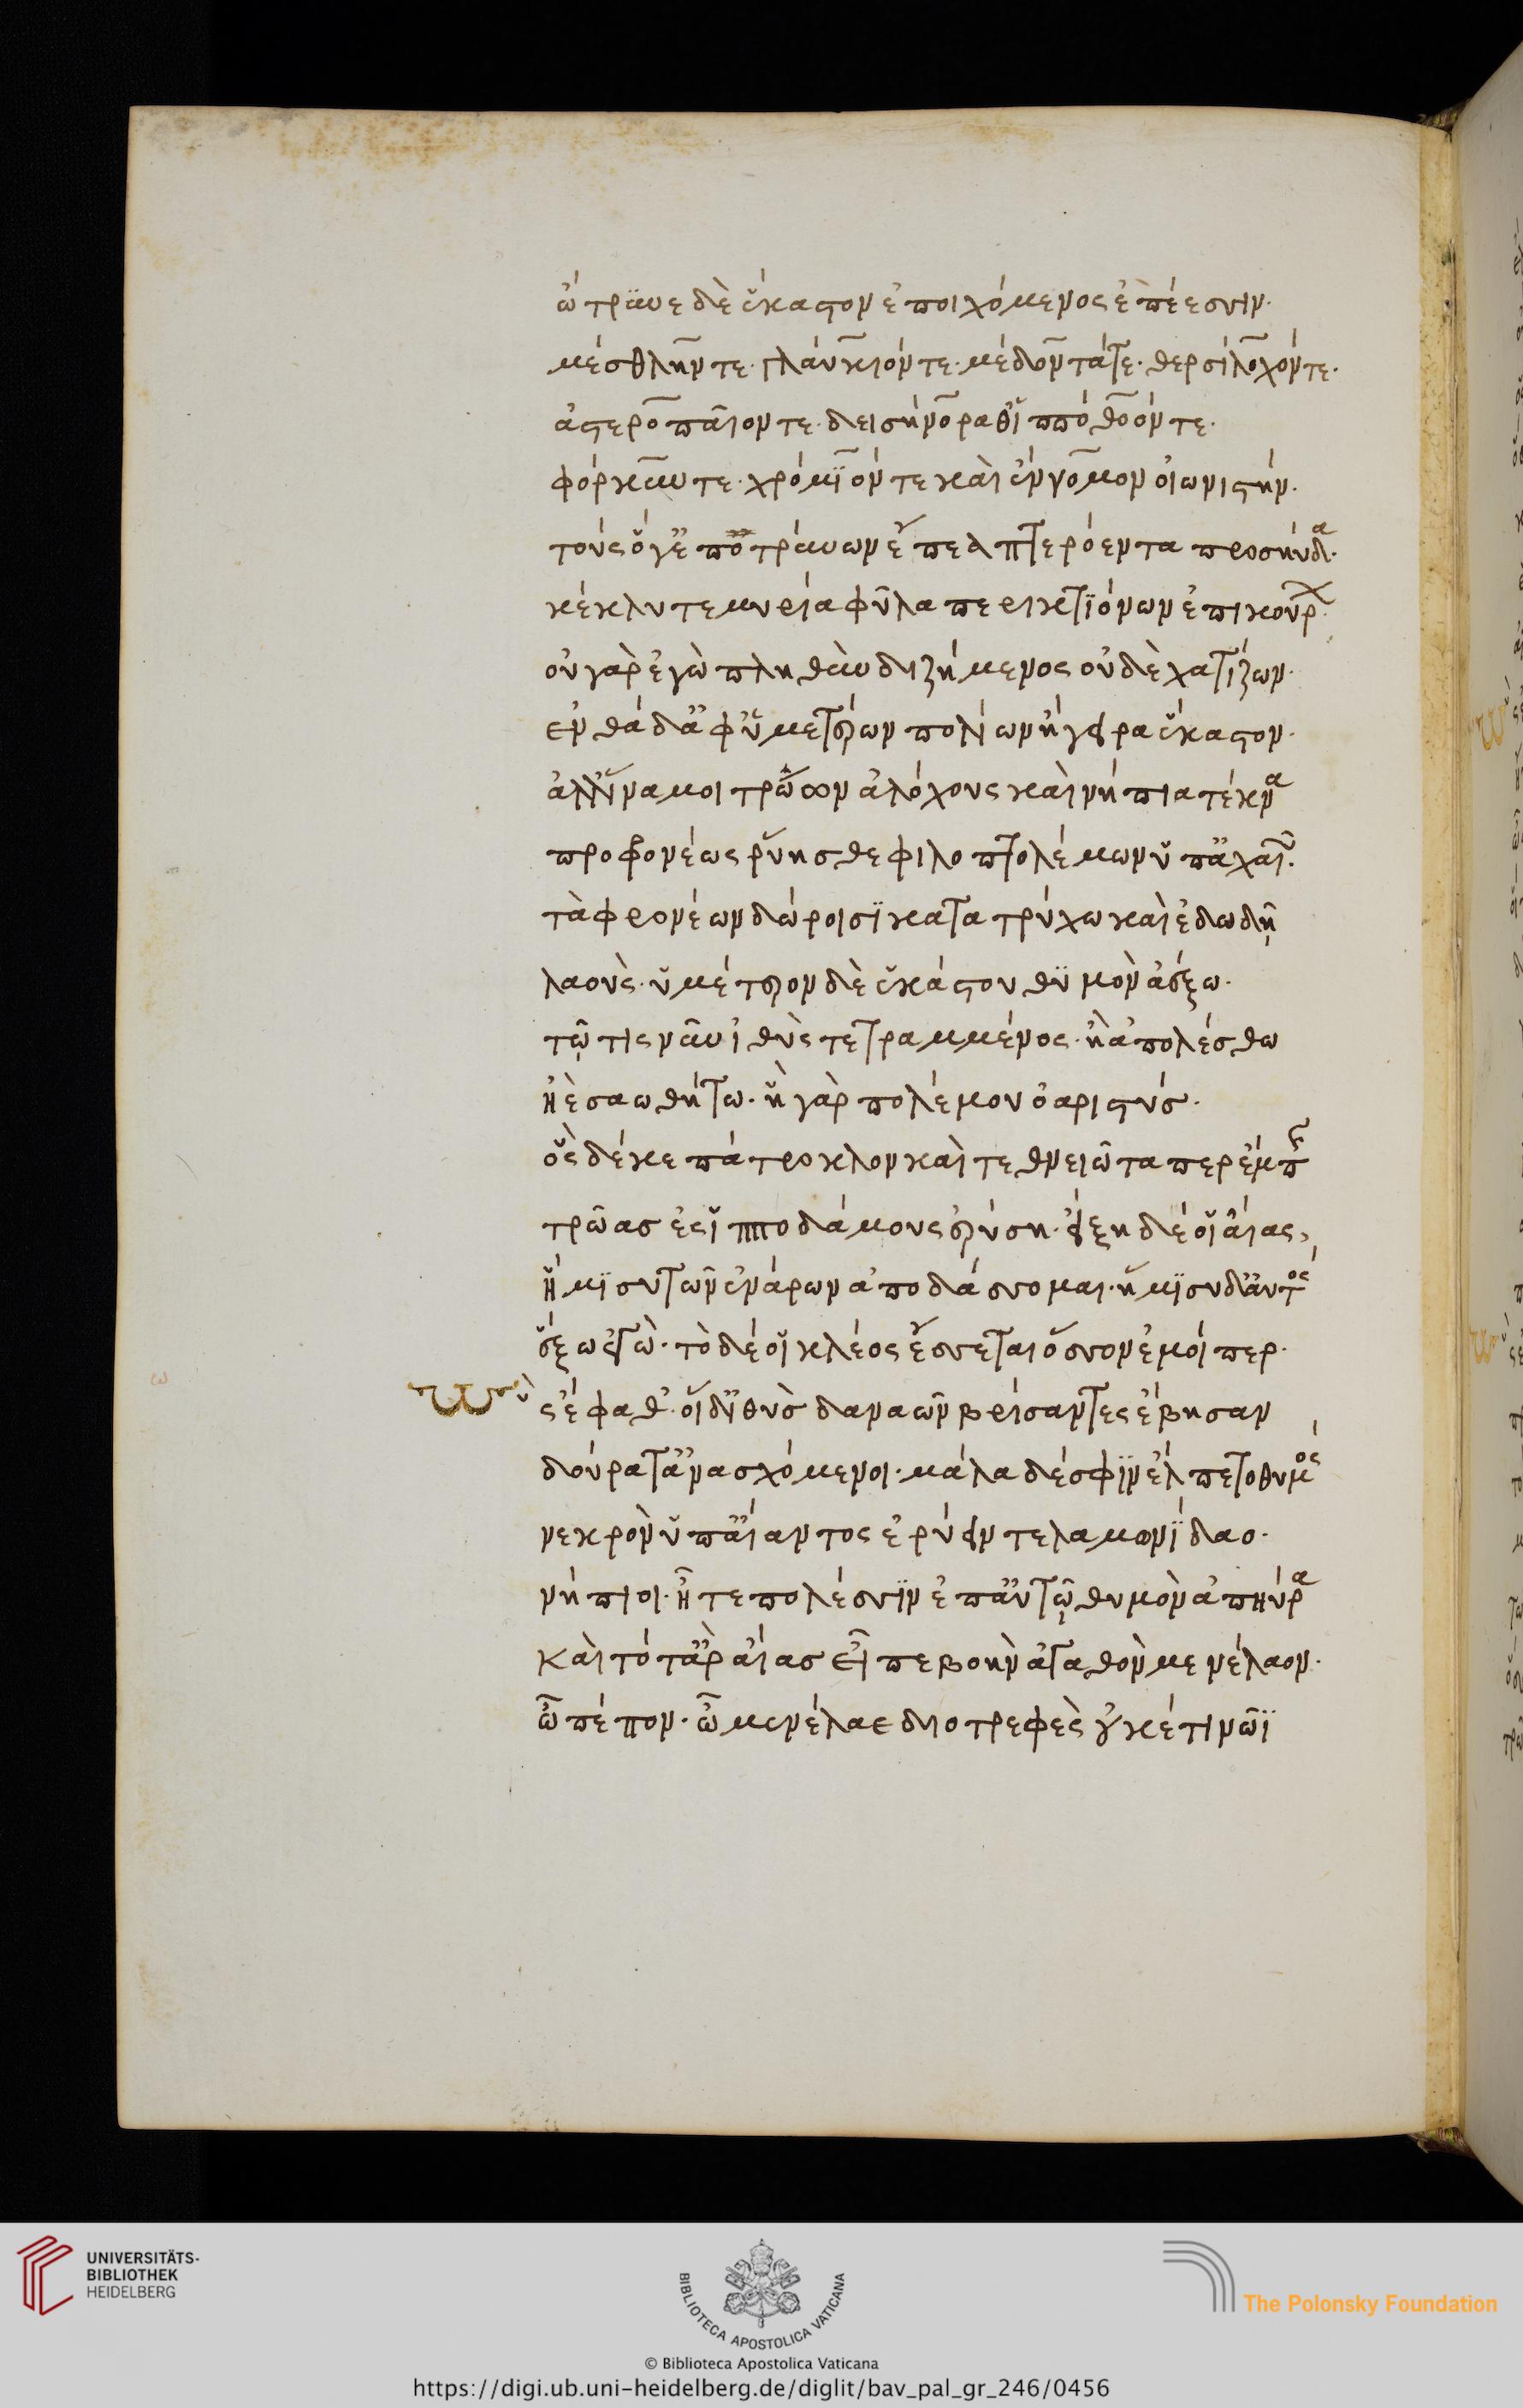 ὤτρυνε δὲ ἕκαστον ἐποιχόμενος ἐπέεσσιν·
μέσθλην τε· γλαῦκόν τε· μέδοντά τε· θερσίλοχόν τε·
ἀστεροπαῖον τε· δεισήνορα θ' ἵππόθοόν τε·
φόρκυν τε· χρόμϊόν τε καὶ ἔννομον οἰωνιστήν·
τοὺς ὅγ' ἐποτρύνων ἔπεα πτερόεντα προσηύδα·
κέκλυτε μυρία φῦλα περικτϊόνων ἐπικούρων·
οὐ γὰρ ἐγὼ πληθὺν διζήμενος οὐδὲ χατίζων·
ἐνθάδ' ἀφ' ὑμετέρων πολίων ἤγειρα ἕκαστον·
ἀλλ' ἵνα μοι τρώων ἀλόχους καὶ νήπια τέκνα
προφρονέως ῥύησθε φιλοπτολέμων ὑπ' ἀχαιῶν·
τὰ φρονέων δώροισϊ κατατρύχω καὶ ἐδωδῇ
λαοὺς· ὑμέτερον δὲ ἑκάστου θϋμὸν ἀέξω·
τῷ τις νῦν ἰθὺς τετραμμένος· ἢ ἀπολέσθω
ἠὲ σαωθήτω· ἣ γὰρ πολέμου ὀαριστύς·
ὃς δέ κε πάτροκλον καὶ τεθνειῶτα περ ἔμπης
τρῶας ἐς ἱπποδάμους ἐρύσῃ· εἴξη δέ οἱ αἴας,
ἥμϊσυ τῶν ἐνάρων ἀποδάσσομαι· ἥμϊσυ δ' αὐτὸς
ἕξω ἐγὼ· τὸ δέ οἱ κλέος ἔσσεται ὅσσον ἐμοί περ·
Ὣς ἔφαθ'· οἱ δ' ἰθὺς δαναῶν βρίσαντες ἔβησαν
δούρατ' ἀνασχόμενοι· μάλα δέ σφϊν ἔλπετο θυμὸς
νεκρὸν ὑπ' αἴαντος ἐρύειν τελαμωνϊάδαο·
νήπιοι· ἦ τε πολέσσϊν ἐπ' αὐτῷ θυμὸν ἀπηύρα
καὶ τότ' ἂρ αἴας εἶπε βοὴν ἀγαθὸν μενέλαον·
ὦ πέπον· ὦ μενέλαε διοτρεφὲς οὐκέτι νῶϊ
UNIVERSITÄTS-
BIBLIOTHEK
HEIDELBERG
BIBLIOTECA APOSTOLICA VATICANA
The Polonsky Foundation
© Biblioteca Apostolica Vaticana
https://digi.ub.uni-heidelberg.de/diglit/bav_pal_gr_246/0456